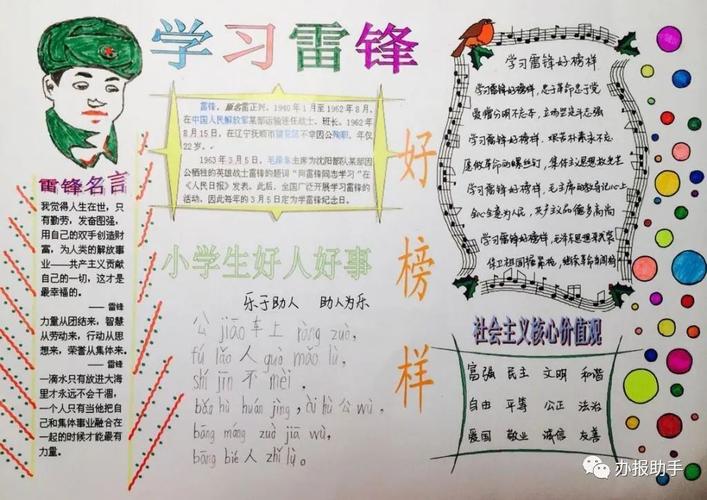 学习雷锋
好榜样
雷锋，原名雷正兴，1940年1月至1962年8月，
在中国人民解放军某部运输连任战士、班长。1962
年8月15日，在辽宁抚顺市望花区不幸因公殉职，年仅
22岁。
1963年3月5日，毛泽东主席为沈阳部队某部因
公牺牲的英雄战士雷锋的题词“向雷锋同志学习”在
《人民日报》发表。此后，全国广泛开展学习雷锋的
活动，因此每年的3月5日定为学雷锋纪念日。
雷锋名言
我觉得人生在世，只
有勤劳，发奋图强，
用自己的双手创造财
富，为人类的解放事
业——共产主义贡献
自己的一切，这才是
最幸福的。
——雷锋
力量从团结来，智慧
从劳动来，行动从思
想来，荣誉从集体来。
——雷锋
一滴水只有放进大海
里才永远不会干涸，
一个人只有当他把自
己和集体事业融合在
一起的时候才能最有
力量。
小学生好人好事
乐于助人 助人为乐
公 jiāo 车 上 ràng zuò,
fú lǎo 人 guò mǎo lù,
shí jīn 不 mèi,
bǎo hù huán jìng, ài hù 公 wù,
bāng máng zuò jiā wù,
bāng bié 人 zhǐ lù。
学习雷锋好榜样
学习雷锋好榜样，忠于革命忠于党
爱憎分明不忘本，立场坚定斗志强
学习雷锋好榜样，艰苦朴素永不忘
愿做革命的螺丝钉，集体主义思想放光芒
学习雷锋好榜样，毛主席的教导记心上
全心全意为人民，共产主义品德多高尚
学习雷锋好榜样，毛泽东思想来武装
保卫祖国握紧枪，继续革命当闯将
社会主义核心价值观
富强 民主 文明 和谐
自由 平等 公正 法治
爱国 敬业 诚信 友善
办报助手